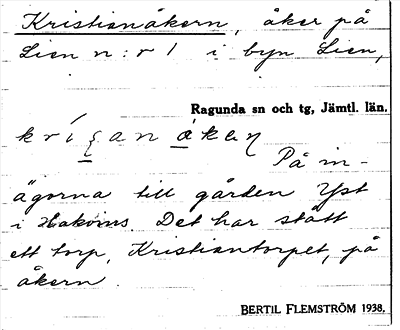 Kristianåkern, åker på
Lien n:r 1 i byn Lien,
Ragunda sn och tg, Jämtl. län.
På in-
ägorna till gården Yst
i Hakoms. Det har stått
ett torp, Kristiantorpet, på
åkern.
BERTIL FLEMSTRÖM 1938.